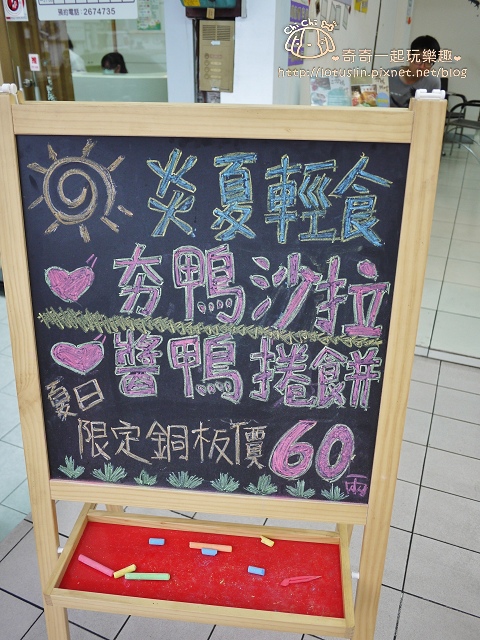 預約電話:2674735
Chi Chi
奇奇一起玩樂趣
http://lotuslin.pixnet.net/blog
炎夏輕食
夯鴨沙拉
醬鴨捲餅
夏日
限定銅板價60